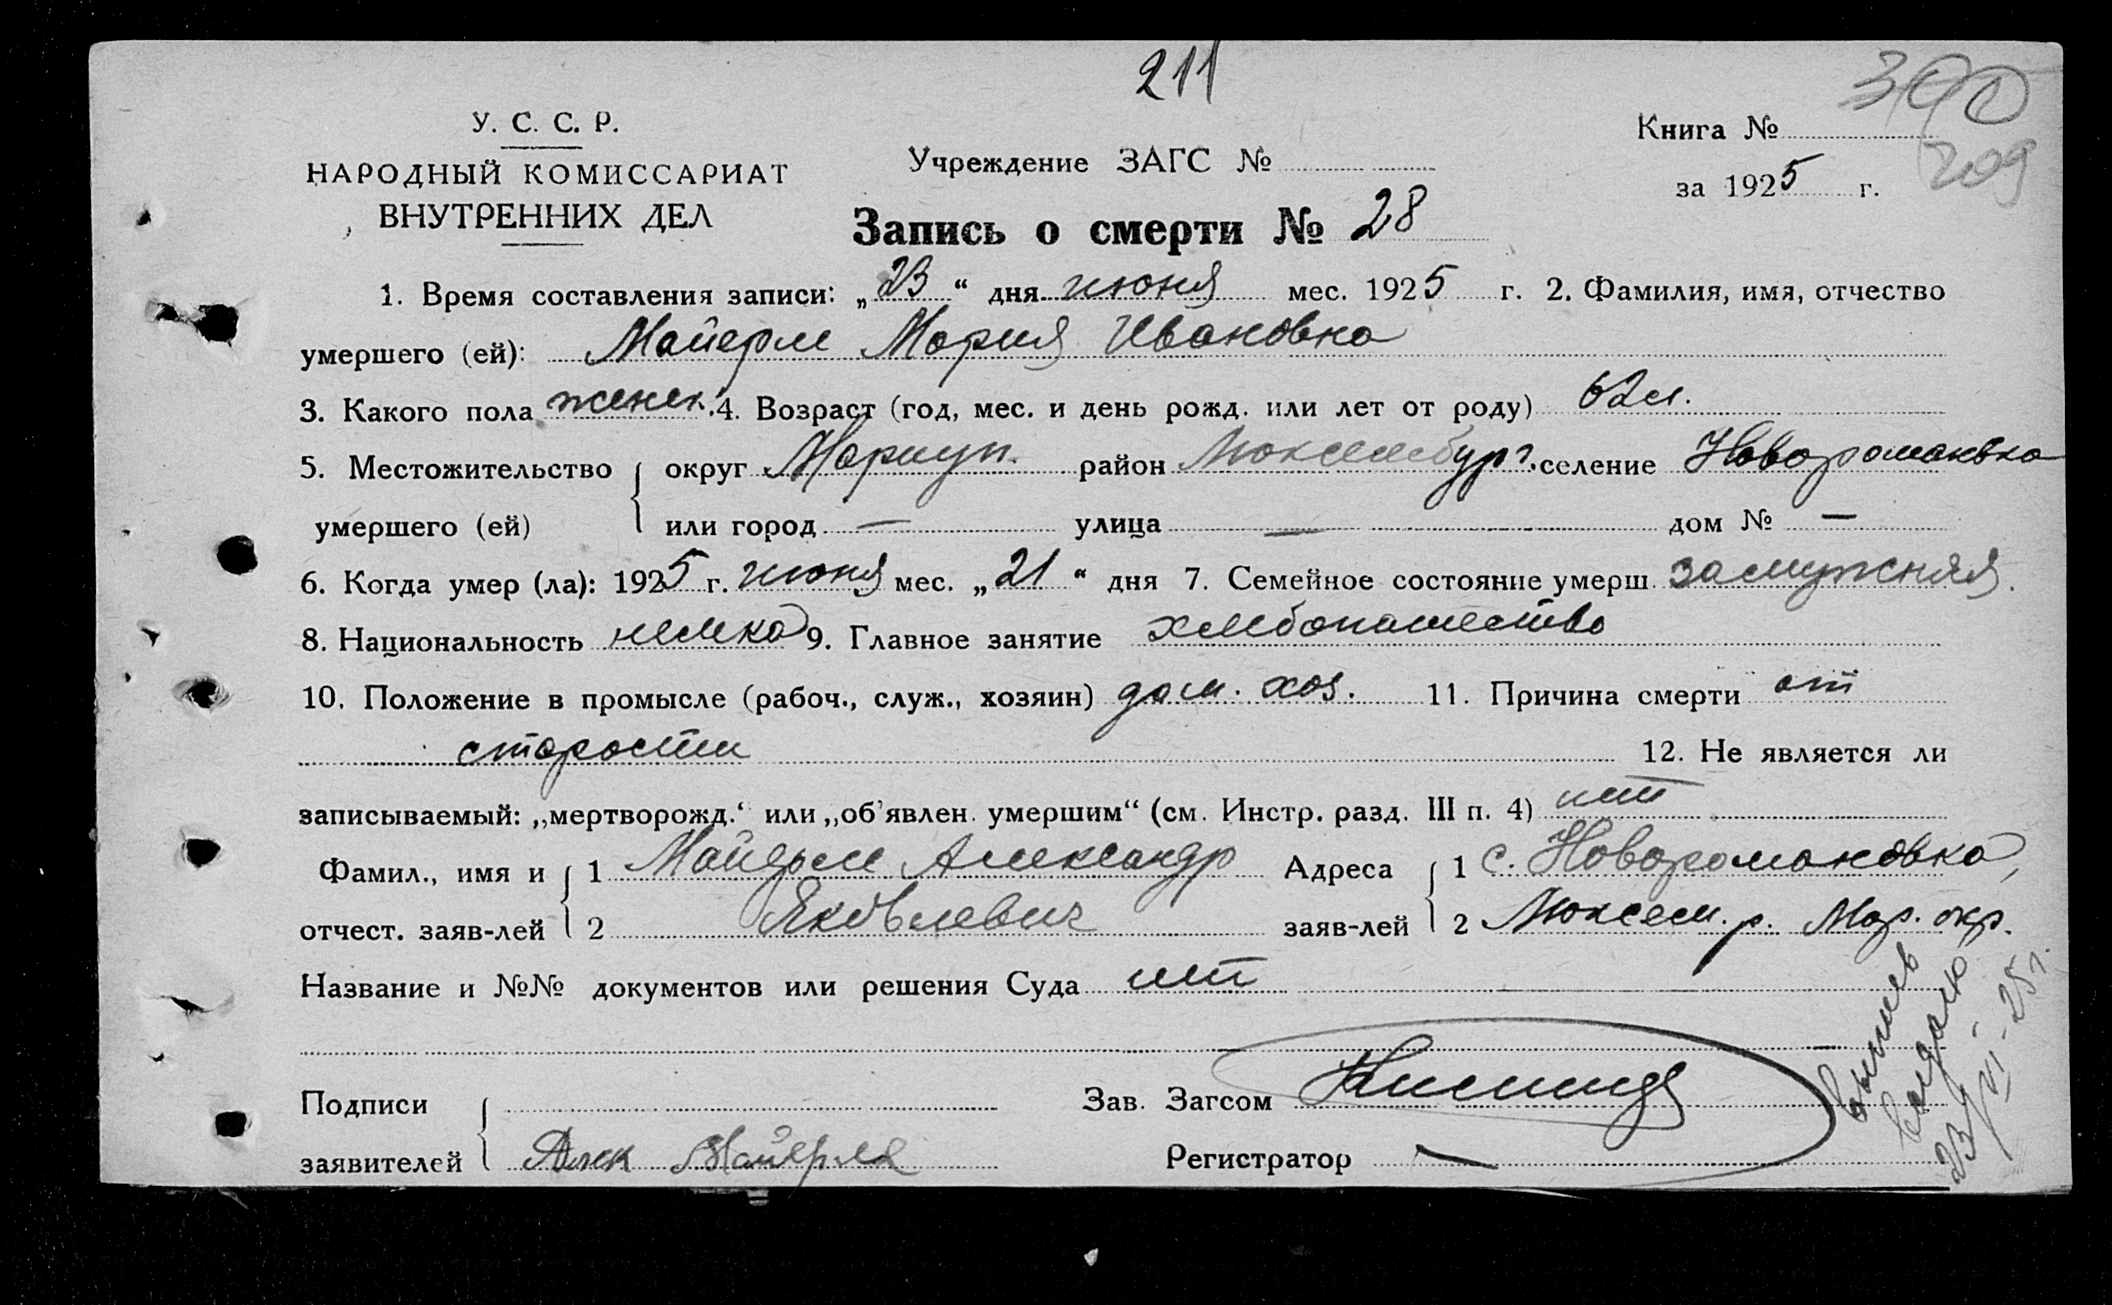 211
390
209
У. С. С. Р.
НАРОДНЫЙ КОМИССАРИАТ
ВНУТРЕННИХ ДЕЛ
Учреждение ЗАГС №
Книга №
за 1925 г.
Запись о смерти № 28
1. Время составления записи: „23“ дня июня мес. 1925 г. 2. Фамилия, имя, отчество
умершего (ей): Майерле Мария Ивановна
3. Какого пола женск. 4. Возраст (год, мес. и день рожд. или лет от роду) 62 л.
5. Местожительство умершего (ей) округ Мариуп. район Люксембург. селение Новоромановка
или город — улица — дом № —
6. Когда умер (ла): 1925 г. июня мес. „21“ дня 7. Семейное состояние умерш. замужняя.
8. Национальность немка 9. Главное занятие хлебопашество
10. Положение в промысле (рабоч., служ., хозяин) дом. хоз. 11. Причина смерти от
старости 12. Не является ли
записываемый: „мертворожд.“ или „об'явлен умершим“ (см. Инстр. разд. III п. 4) нет
Фамил., имя и 1 Майерле Александр Адреса 1 с. Новоромановка,
отчест. заяв-лей 2 Яковлевич заяв-лей 2 Люксем. р. Мар. окр.
Название и №№ документов или решения Суда нет
Подписи Зав. Загсом
заявителей Алек Майерле Регистратор —
выпись
выдана
23/VI-25 г.